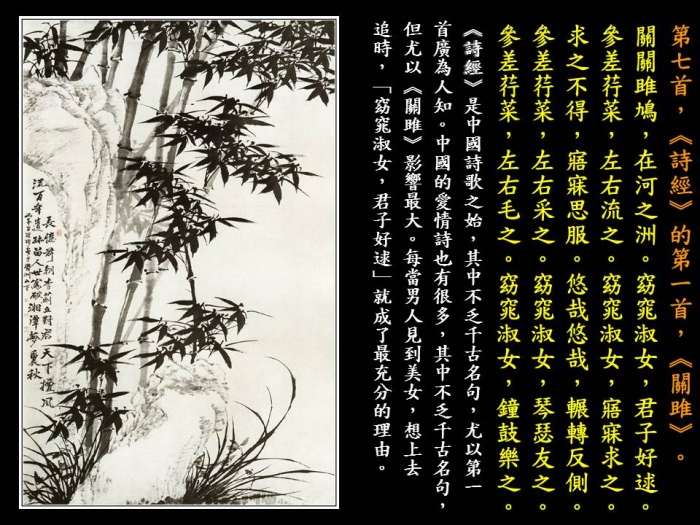 第七首,《詩經》的第一首,《關雎》。
關關雎鳩,在河之洲。窈窕淑女,君子好逑。
參差荇菜,左右流之。窈窕淑女,寤寐求之。
求之不得,寤寐思服。悠哉悠哉,輾轉反側。
參差荇菜,左右采之。窈窕淑女,琴瑟友之。
參差荇菜,左右毛之。窈窕淑女,鐘鼓樂之。
《詩經》是中國詩歌之始,其中不乏千古名句,尤以第一
首廣為人知。中國的愛情詩也有很多,其中不乏千古名句,
但尤以《關雎》影響最大。每當男人見到美女,想上去
追時,「窈窕淑女,君子好逑」就成了最充分的理由。
長憶前朝李薊丘君天下擅風
流百年遺留人世寫破湘潭夢裏秋